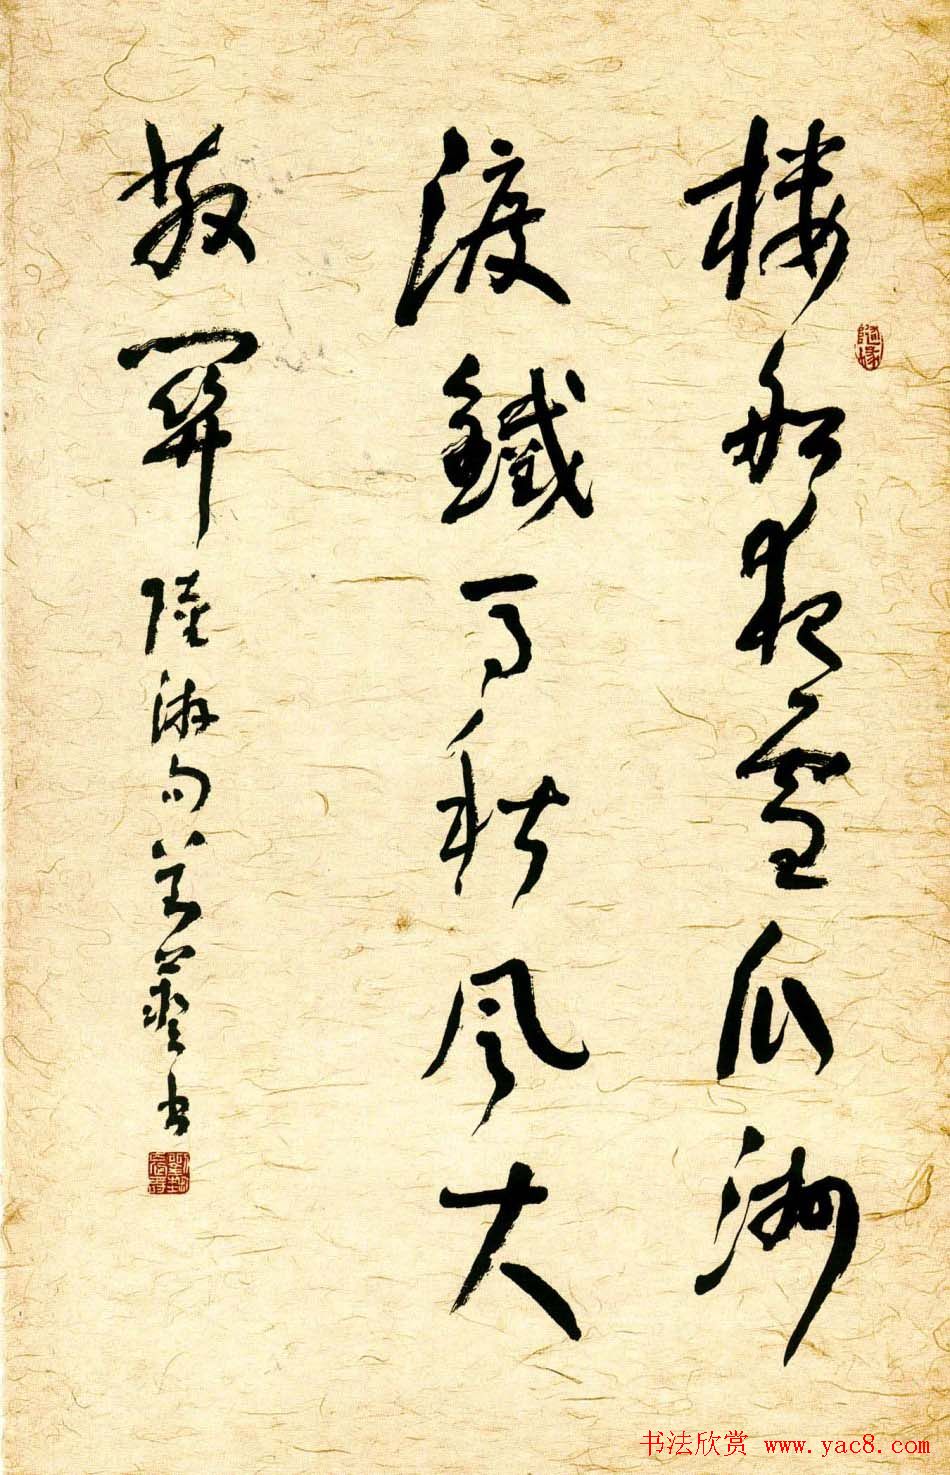 楼船夜雪瓜洲
渡鐵马秋风大
散關
陸游句 书
隨緣
书法欣赏 www.yac8.com